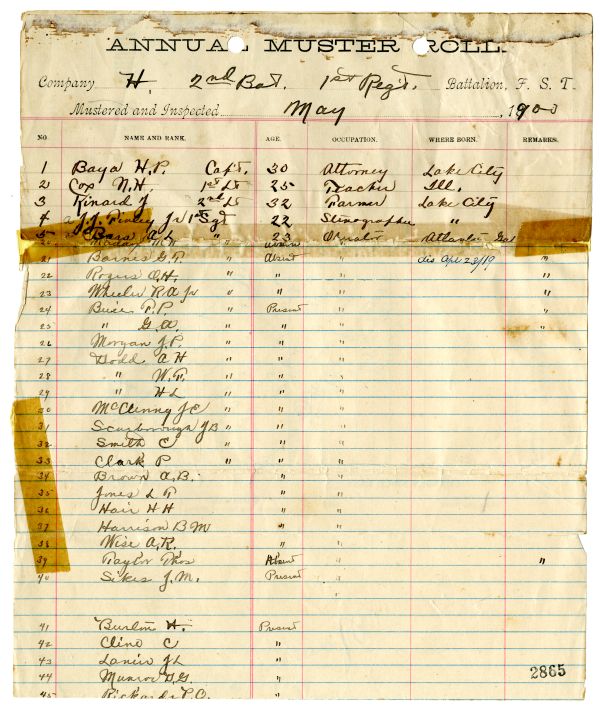 ANNUAL MUSTER ROLL.
Company H. 2nd Bat. 1st Reg't. Battalion, F. S. T.
Mustered and Inspected May , 1900
NO. NAME AND RANK. AGE. OCCUPATION. WHERE BORN. REMARKS.
1 Baya H. P. Cap't. 30 Attorney Lake City
2 Cox N. H. 1st Lt 25 Teacher Ill.
3 Kinard J 2nd Lt 32 Farmer Lake City
4 J. J. Jr 1st Sgt 22 Stenographer "
5 A L " 23 Operator Atlanta Ga
20
21 Barnes G. P. " Absent " dis Apr 23/19 "
22 Rogers O. H. " " " "
23 Wheeler R A Jr " " " "
24 P. P. " Present " "
25 " G. A. " " " "
26 Morgan J. P. " " "
27 Dodd A H " " "
28 " W. P. " " "
29 " H L " " "
30 McClenny J C " " "
31 Scarborough J B " " "
32 Smith C " " "
33 Clark P " " "
34 Brown A. B. " "
35 Jones L P " "
36 Hair H H " "
37 Harrison B M " "
38 Wise A. R. " "
39 Taylor Thos Absent " "
40 Sikes J. M. Present "
"
41 H. Present
42 Cline C "
43 Lanier J L "
44 Munroe D. G. "
45 "
2865